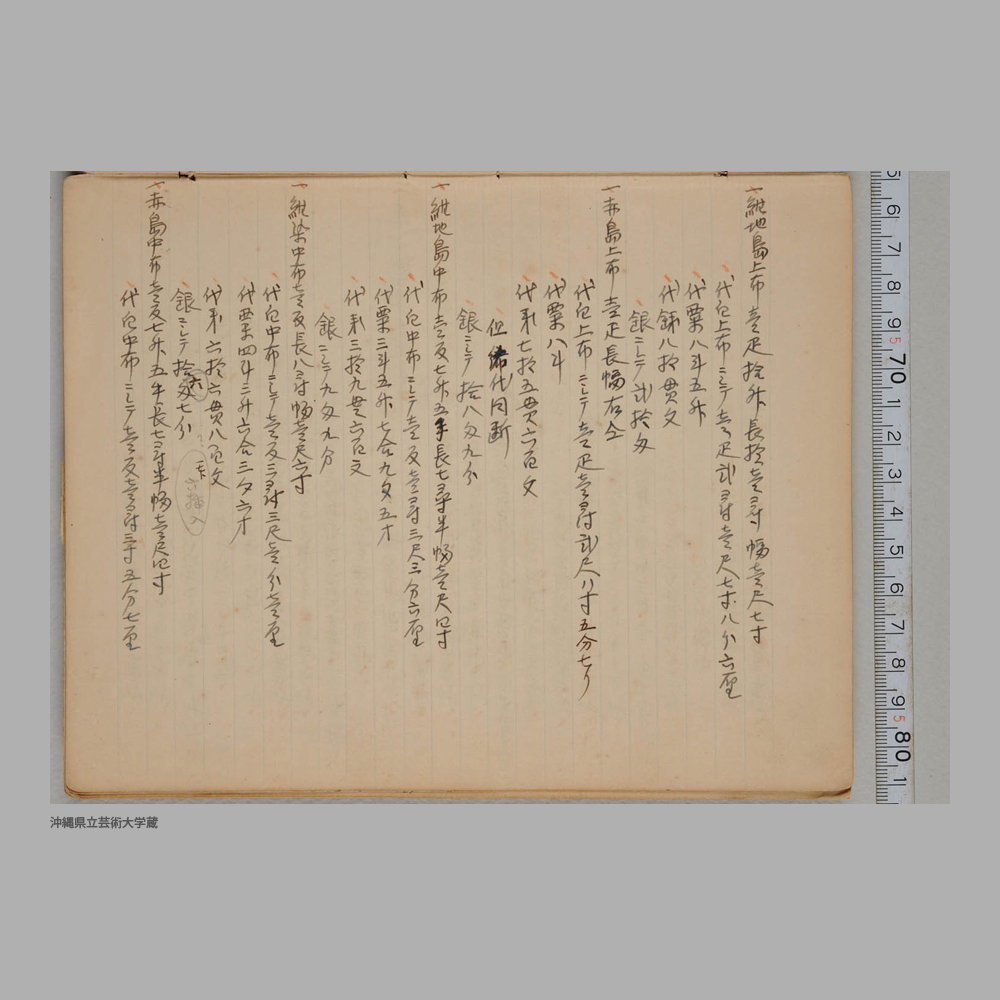 一紺地島上布壱疋拾舛長拾壱尋寸幅壱尺七寸
代白上布ニシテ壱疋弐尋壱尺七寸八分六厘
代粟八斗五舛
代銭八拾貫文
銀ニシテ弐拾匁
一赤島上布壱疋長幅右仝
代白上布ニシテ壱疋壱尋弐尺八寸五分七り
代粟八斗
代釆七拾五貫六百文
但代同断
銀ニシテ拾八匁九分
一紺地島中布壱反七舛五半長七尋半幅壱尺四寸
代白中布ニシテ壱反壱尋三尺三分六厘
代粟三斗五舛七合九夕五才
代釆三拾九貫六百文
銀ニシテ九匁九分
一紺染中布壱反長八尋幅壱尺六寸
代白中布ニシテ壱反三尋三尺壱分壱厘
代四斗三舛六合三夕六才
代釆六拾六貫八百文
銀ニシテ拾六匁七分
六挿入
一赤島中布壱反七舛五半長七尋半幅壱尺四寸
代白中布ニシテ壱反壱尋三寸五分七厘
5 6 7 8 9 70 1 2 3 4 5 6 7 8 9 80 1
沖縄県立芸術大学蔵